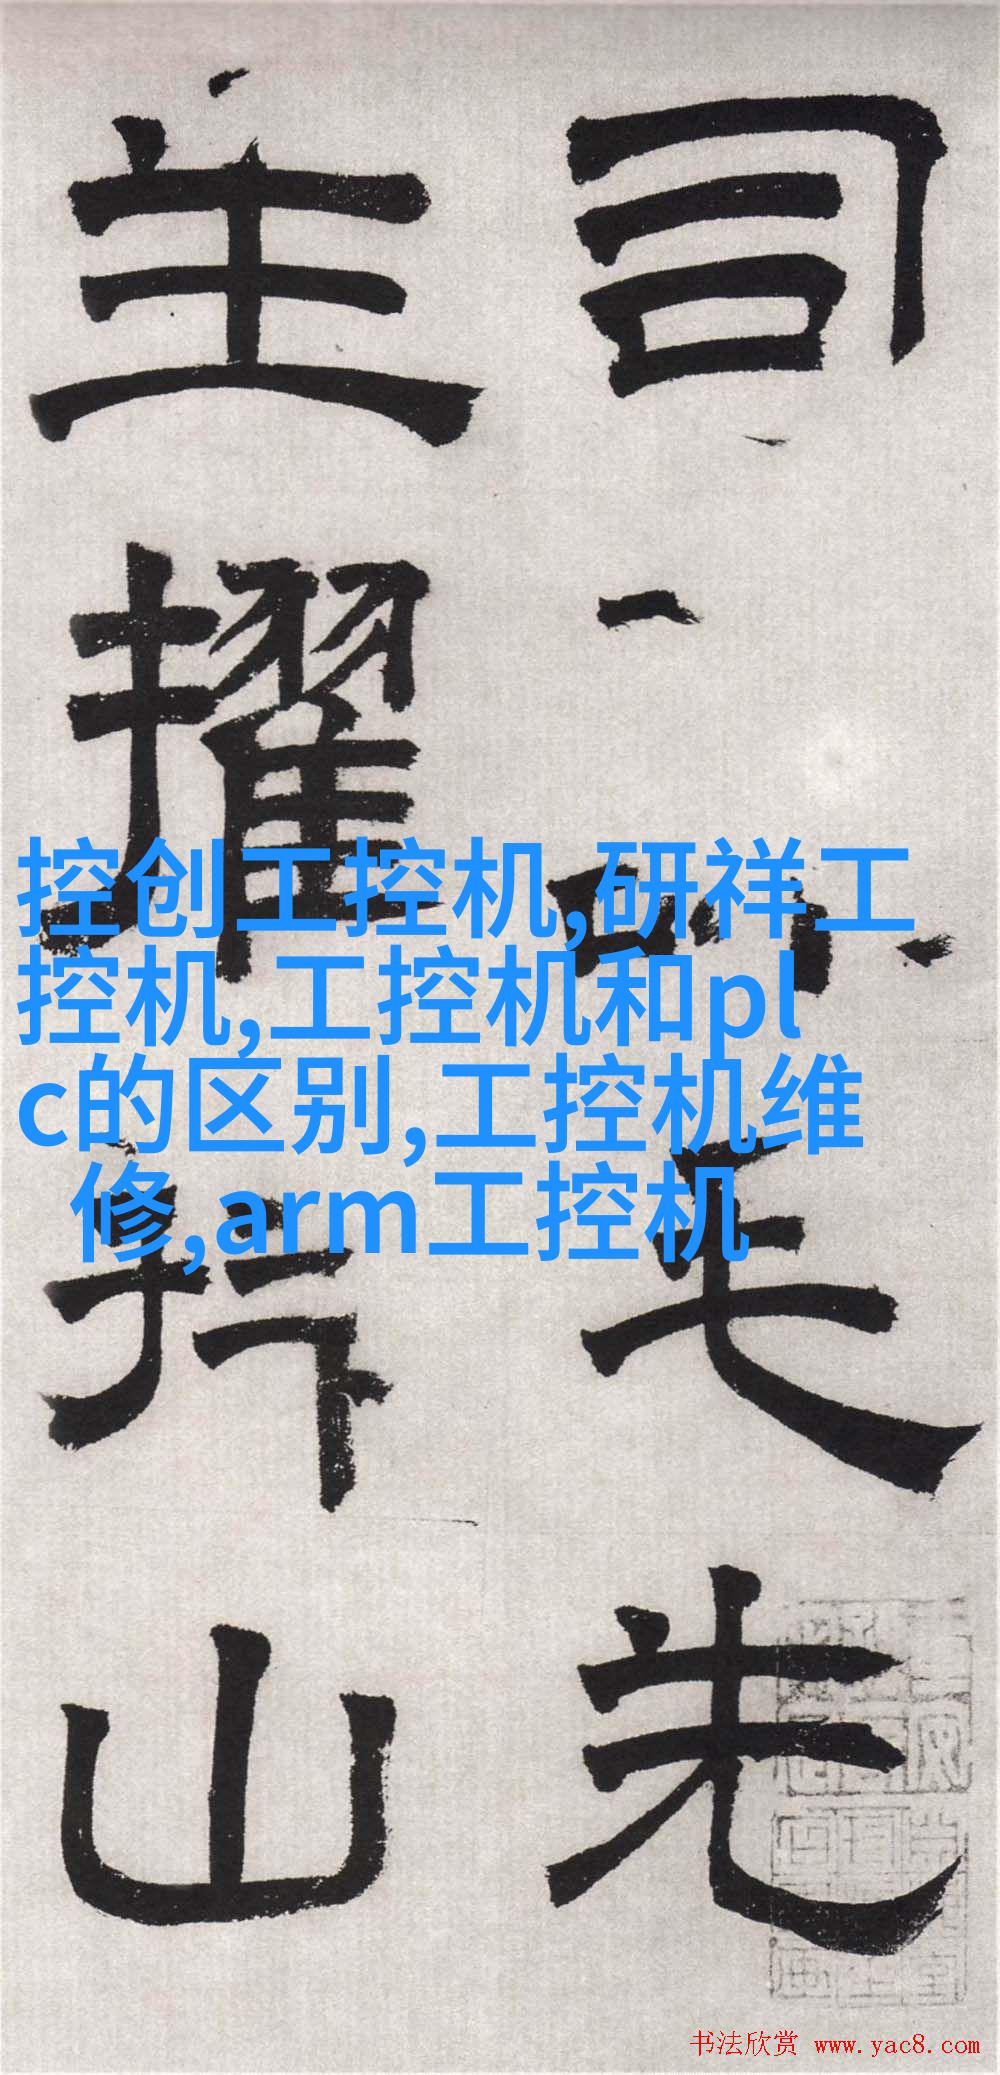 司
一
毛
先
主
擢
於
山
控创工控机,研祥工
控机,工控机和pl
c的区别,工控机维
修,arm工控机
书法欣赏 www.yac8.com